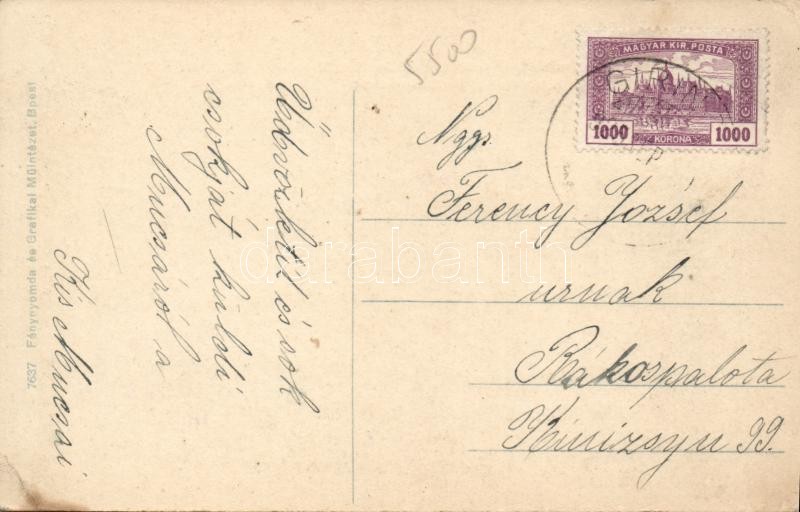 5500
MAGYAR KIR. POSTA
1000 1000
KORONA
Üdvözletül és sok
csókját küldi
Mucsáról a
Kis Mucsai
Ngys.
Ferency József
urnak
Rákospalota
Kinizsyu 99.
7637 Fénynyomda és Grafikai Müintézet, Bpest
darabanth